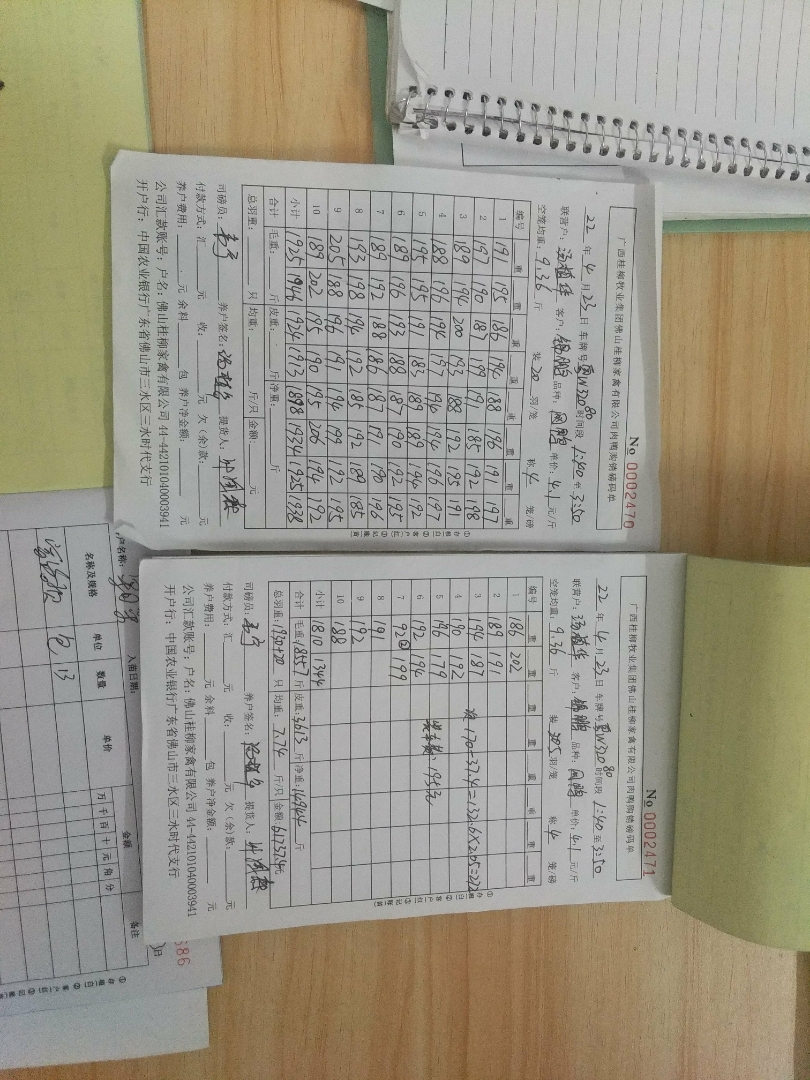 广西桂柳牧业集团佛山桂柳家禽有限公司肉鸭购销磅码单
No 0002470
22 年 4 月 23 日 车牌号 时间段 1:40 至 3:50
联营户: 客户: 品种: 单价: 4.1 元/斤
空笼均重: 9.36 斤 装 20 羽/笼 称 4 笼/磅
编号 重 重 重 重 重 重 重 重
1 191 195 186 194 188 196 191 197
2 197 190 187 199 191 185 192 198
3 189 194 200 193 188 192 185 191
4 188 196 194 197 194 194 196 197
5 195 195 191 183 189 189 194 192
6 189 196 193 188 187 190 192 195
7 189 192 188 186 187 191 190 196
8 193 198 194 192 185 192 189 185
9 205 188 196 191 194 199 192 195
10 189 202 195 190 195 206 194 192
小计 1925 1946 1924 1913 1898 1934 1925 1938
合计 毛重: 斤 皮重: 斤 净重: 斤
总羽重: 只 均重: 斤/只 金额: 元
司磅员: 养户签名: 提货人:
付款方式: 汇 元 收: 元 欠(余)款: 元
养户费用: 元 余料 包 养户净金额: 元
公司汇款账号: 户名: 佛山桂柳家禽有限公司 44-442101040003941
开户行: 中国农业银行广东省佛山市三水区三水时代支行
广西桂柳牧业集团佛山桂柳家禽有限公司肉鸭购销磅码单
No 0002471
22 年 4 月 23 日 车牌号 时间段 1:40 至 3:50
联营户: 客户: 品种: 单价: 4.1 元/斤
空笼均重: 9.36 斤 装 羽/笼 称 4 笼/磅
编号 重 重 重 重 重 重 重 重
1 186 202
2 189 191
3 194 187
4 190 192
5 196 179
6 192 194
7 92② 199
8 191
9 192
10 188
170-37.4=132.6×2.05=272
195元
小计 1810 1344
合计 毛重: 18557 斤 皮重: 3613 斤 净重: 14944 斤
总羽重: 1930+20 只 均重: 7.74 斤/只 金额: 61737.4元
司磅员: 养户签名: 提货人:
付款方式: 汇 元 收: 元 欠(余)款: 元
养户费用: 元 余料 包 养户净金额: 元
公司汇款账号: 户名: 佛山桂柳家禽有限公司 44-442101040003941
开户行: 中国农业银行广东省佛山市三水区三水时代支行
户名称: 入苗日期:
名称及规格 单位 数量 单价 金额 备注
万 千 百 十 元 角 分
包 13
686